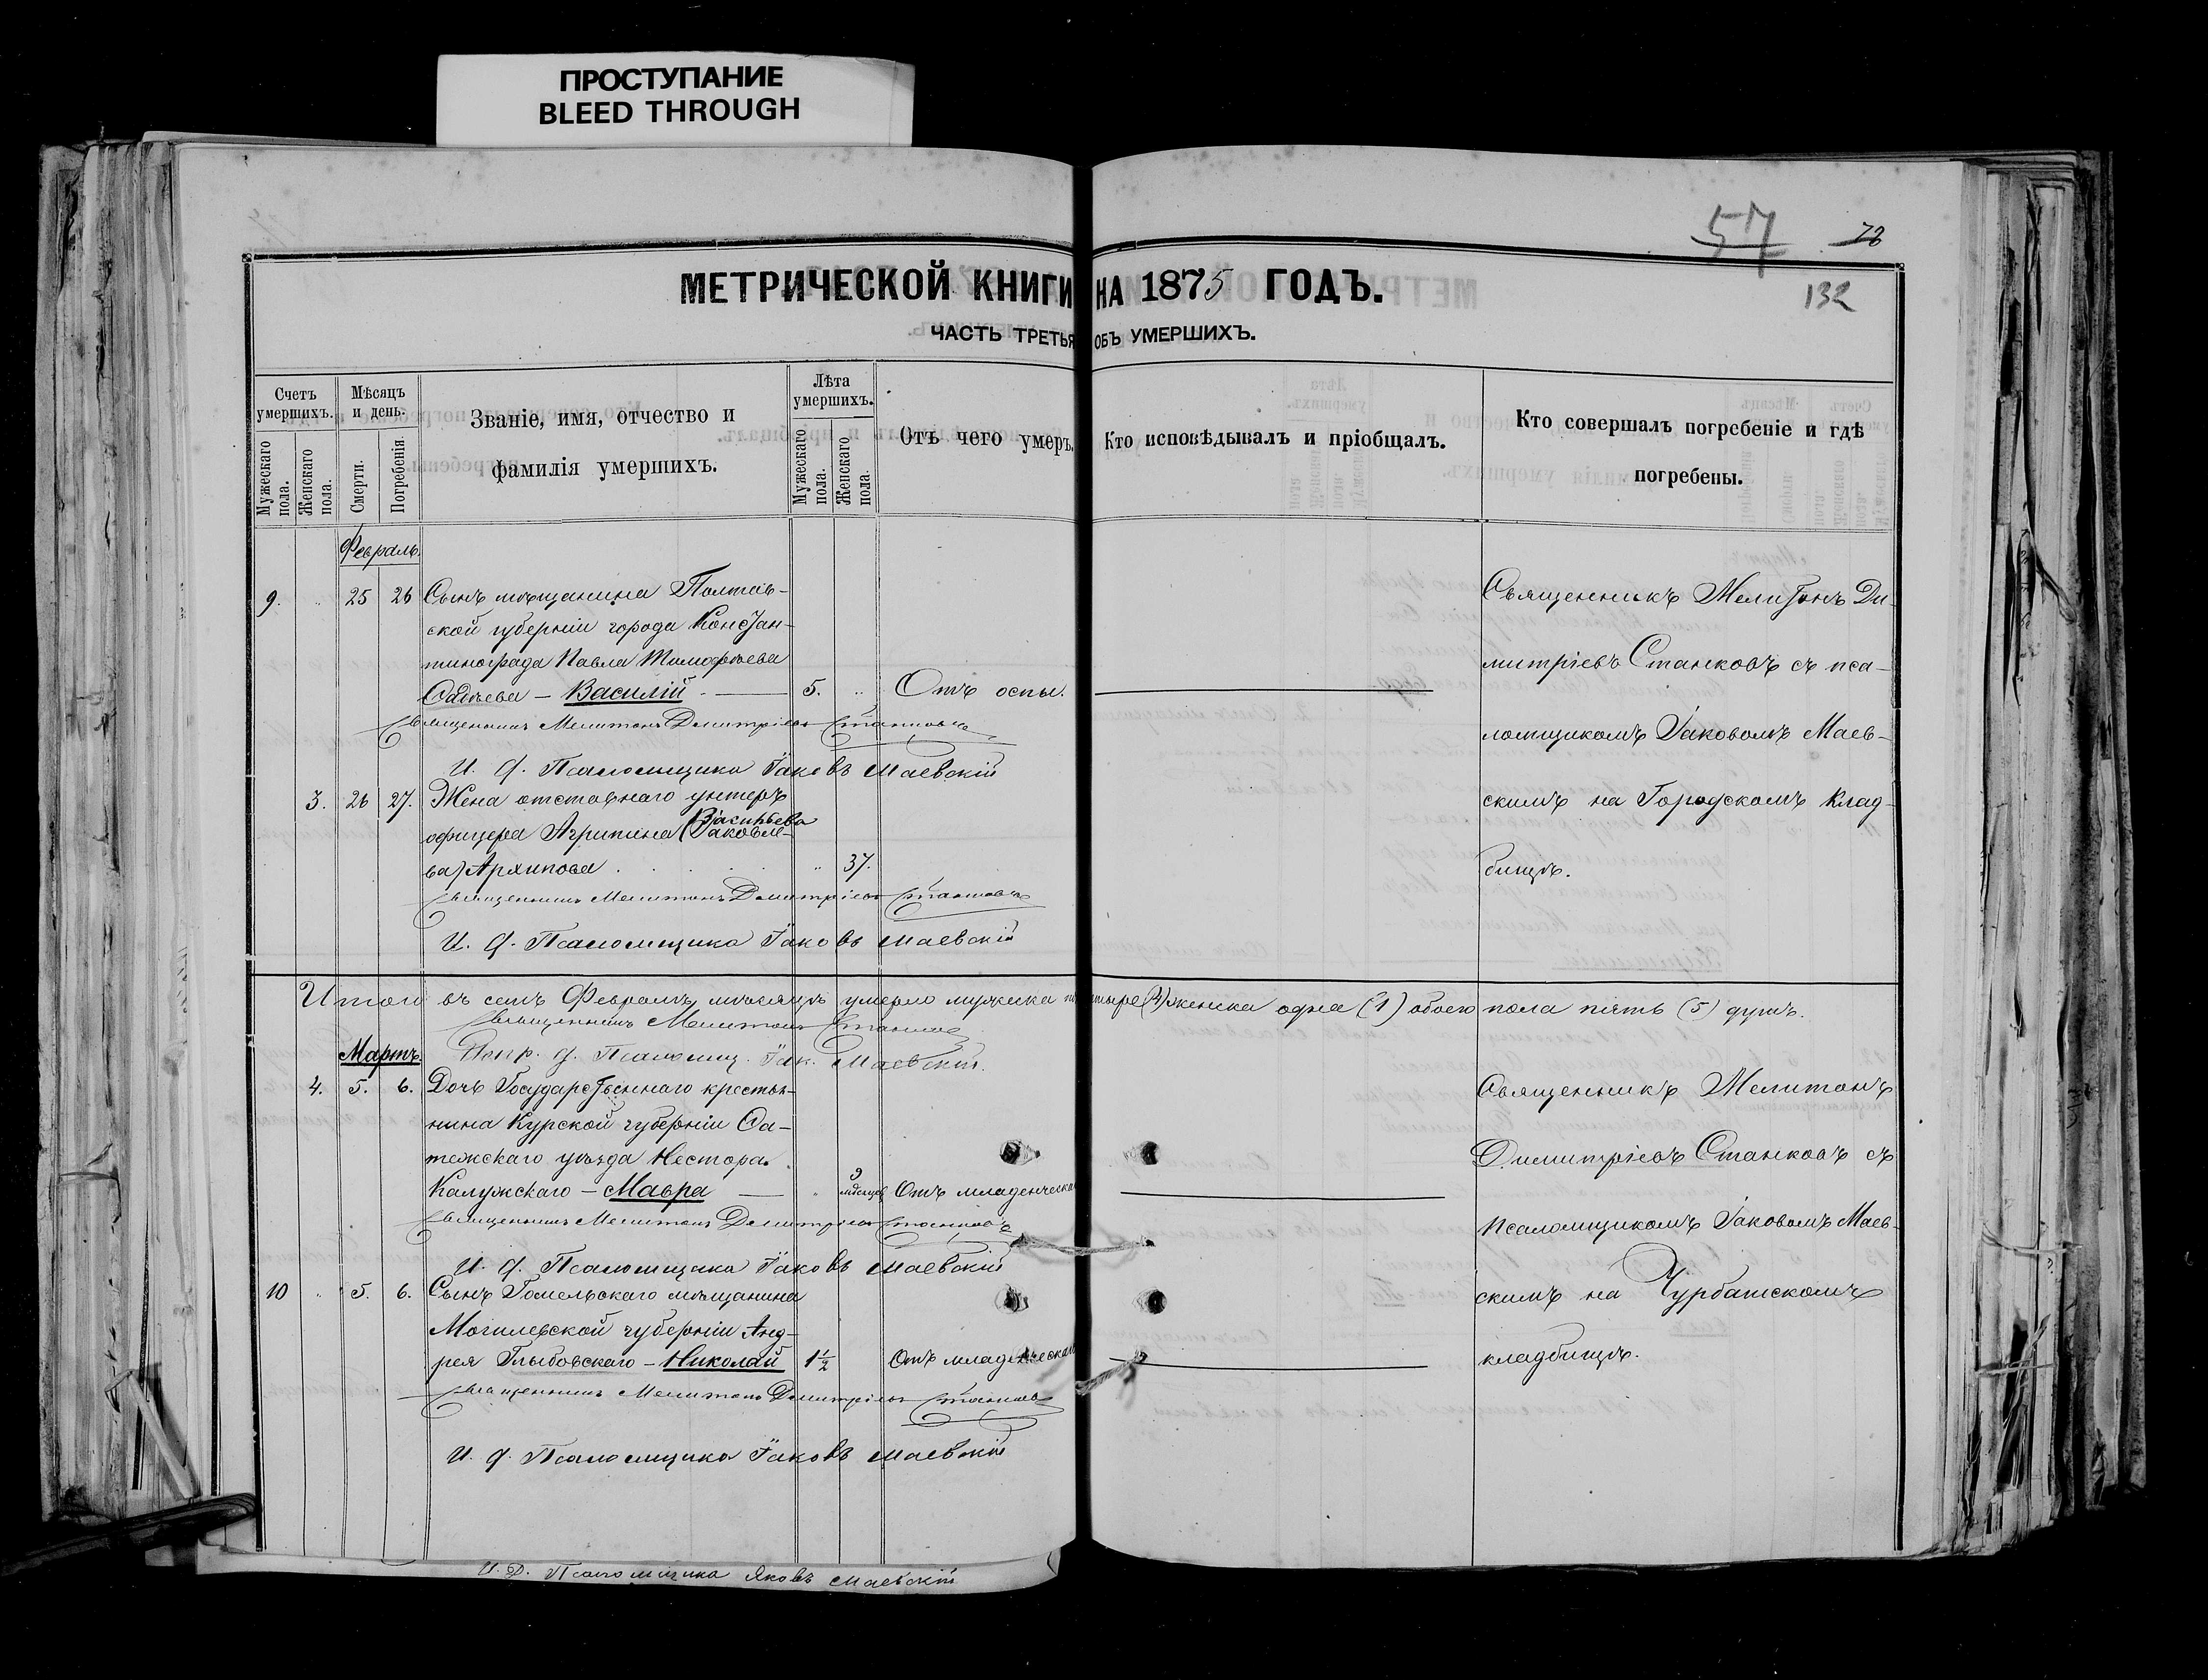 ПРОСТУПАНИЕ
BLEED THROUGH
57 78
132
МЕТРИЧЕСКОЙ КНИГИ НА 1875 ГОДЪ.
ЧАСТЬ ТРЕТЬЯ ОБЪ УМЕРШИХЪ.
Счетъ умершихъ.
Мужескаго пола.
Женскаго пола.
Мѣсяцъ и день.
Смерти.
Погребенія.
Званіе, имя, отчество и
фамилія умершихъ.
Лѣта умершихъ.
Мужескаго пола.
Женскаго пола.
Отъ чего умеръ.
Кто исповѣдывалъ и пріобщалъ.
Кто совершалъ погребеніе и гдѣ
погребены.
Февраль.
9. 25 26 Сынъ мѣщанина Полтав-
ской губерніи города Констан-
тинограда Павла Тимофѣева
Василій 5. Отъ оспы.
Священникъ Мелитонъ Димитріевъ Станковъ
И. д. Псаломщика Іаковъ Маевскій
Священникъ Мелитонъ Ди-
митріевъ Станковъ съ пса-
ломщикомъ Іаковомъ Маев-
скимъ на Городскомъ клад-
бищѣ.
3. 26 27. Жена отставнаго унтеръ
Васильева
офицера Агрипина (Іаковле-
ва) Архипова 37.
Священникъ Мелитонъ Димитріевъ Станковъ
И. д. Псаломщика Іаковъ Маевскій
Итого въ семъ Февралѣ мѣсяцѣ умерло мужеска четыре (4) женска одна (1) обоего пола пять (5) душъ.
Священникъ Мелитонъ Станковъ
Испр. д. Псаломщ. Іак. Маевскій.
Мартъ.
4. 5. 6. Дочь Государственнаго крестья-
нина Курской губерніи Фа-
тежскаго уѣзда Нестора
Калужскаго – Мавра 9 мѣсяцевъ Отъ младенческой
Священникъ Мелитонъ Димитріевъ Станковъ
И. д. Псаломщика Іаковъ Маевскій
Священникъ Мелитонъ
Димитріевъ Станковъ съ
псаломщикомъ Іаковомъ Маев-
скимъ на Чурбашскомъ
кладбищѣ.
10 5. 6. Сынъ Гомельскаго мѣщанина
Могилевской губерніи Анд-
рея Глыбовскаго – Николай 1½ Отъ младенческой
Священникъ Мелитонъ Димитріевъ Станковъ
И. д. Псаломщика Іаковъ Маевскій
И. Д. Псаломщика Яковъ Маевскій